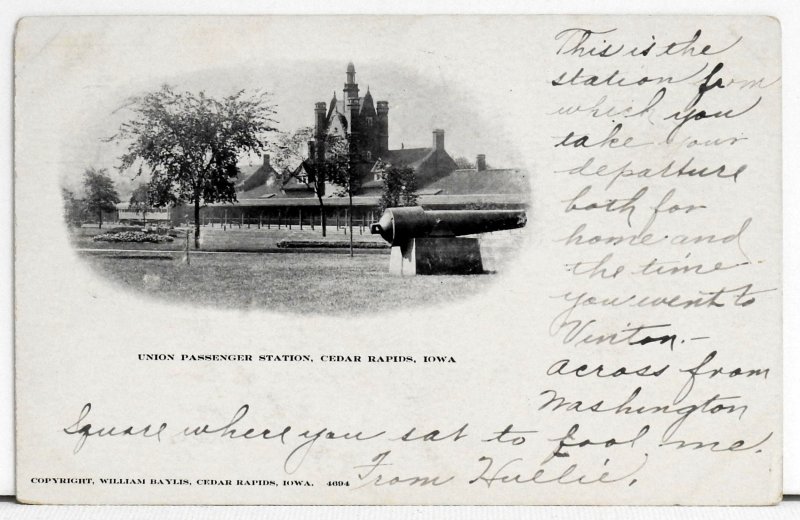 This is the
station from
which you
take your
departure
both for
home and
the time
you went to
Vinton.-
Across from
Washington
UNION PASSENGER STATION, CEDAR RAPIDS, IOWA
Square where you sat to fool me.
From
COPYRIGHT, WILLIAM BAYLIS, CEDAR RAPIDS, IOWA. 4694